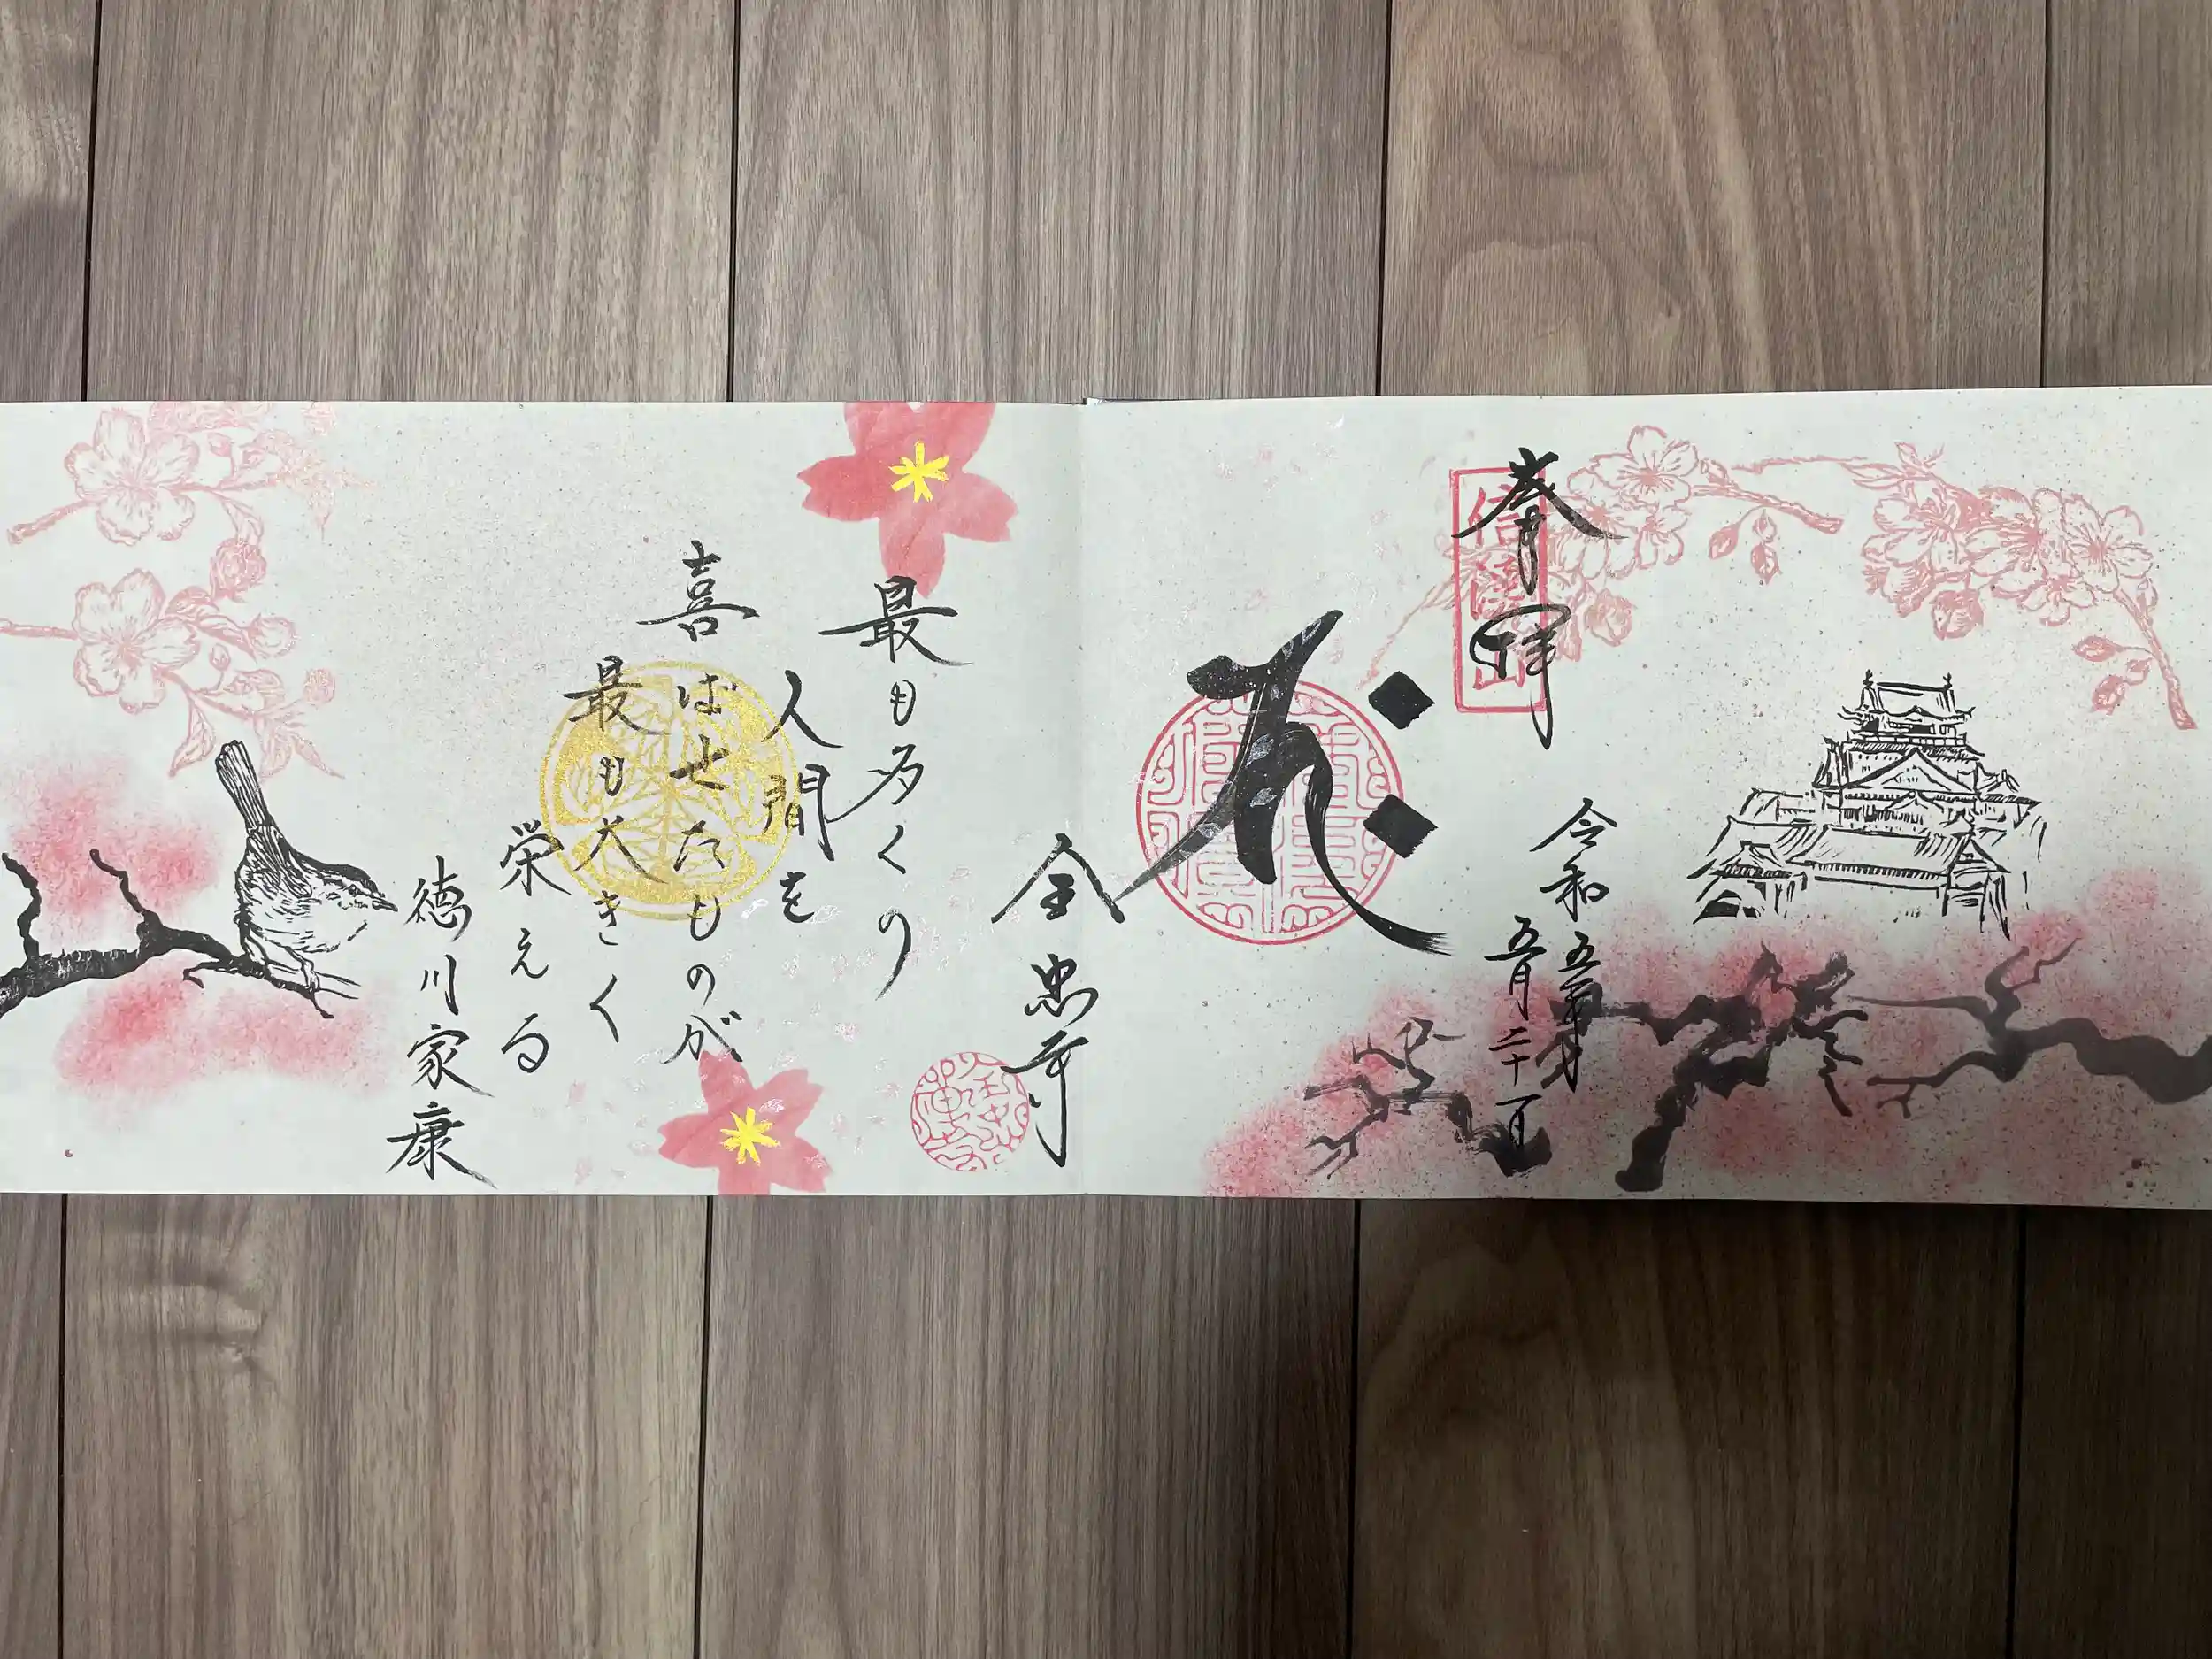 奉拝
令和五年
五月二十一日
全忠寺
最も多くの
人間を
喜ばせたものが
最も大きく
栄える
徳川家康